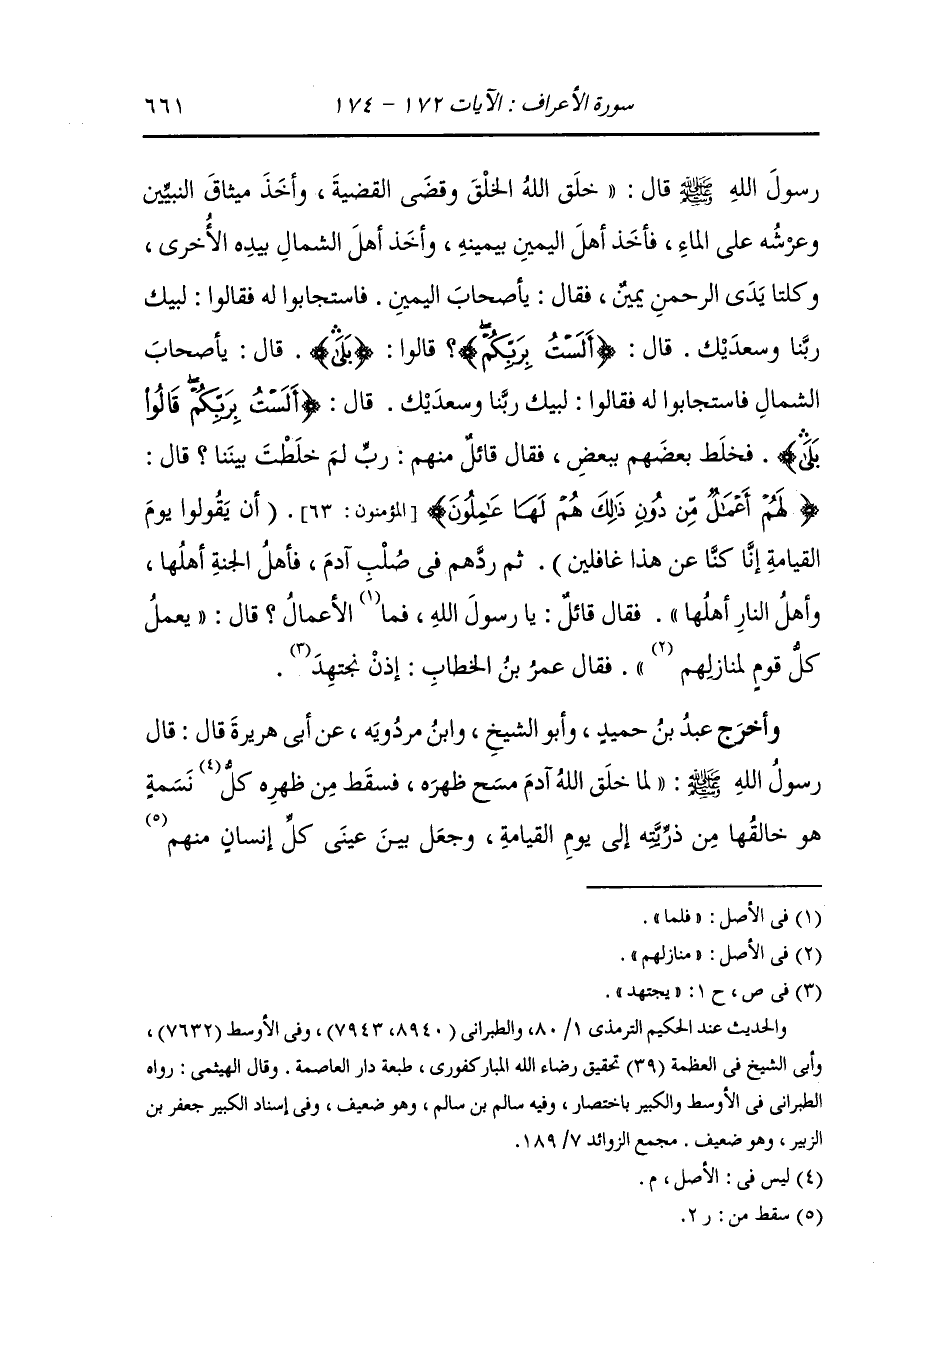 سورة الأعراف : الآيات ١٧٢ - ١٧٤ ٦٦١
رسولَ اللهِ ﷺ قال : « خلَق اللهُ الخلْقَ وقضَى القضيةَ ، وأخَذَ ميثاقَ النبيِّين
وعرْشُه على الماءِ ، فأخَذ أهلَ اليمينِ بيمينهِ ، وأخَذ أهلَ الشمالِ بيدِه الأُخرى ،
وكلتا يَدَى الرحمنِ يمينٌ ، فقال : يأصحابَ اليمينِ . فاستجابوا له فقالوا : لبيك
ربَّنا وسعدَيْك . قال : ﴿أَلَسْتُ بِرَبِّكُمْۖ﴾؟ قالوا : ﴿بَلَىٰۛ﴾ . قال : يأصحابَ
الشمالِ فاستجابوا له فقالوا : لبيك ربَّنا وسعدَيْك . قال : ﴿أَلَسْتُ بِرَبِّكُمْۖ قَالُواْ
بَلَىٰۛ﴾ . فخلَط بعضَهم ببعضٍ ، فقال قائلٌ منهم : ربِّ لمَ خلَطْتَ بينَنا ؟ قال :
﴿ لَهُمْ أَعْمَٰلٌ مِّن دُونِ ذَٰلِكَ هُمْ لَهَا عَٰمِلُونَ﴾ [المؤمنون : ٦٣] . ( أن يَقُولوا يومَ
القيامةِ إنَّا كنَّا عن هذا غافلين ) . ثم ردَّهم فى صُلْبِ آدمَ ، فأهلُ الجنةِ أهلُها ،
وأهلُ النارِ أهلُها » . فقال قائلٌ : يا رسولَ اللهِ ، فما(١) الأعمالُ ؟ قال : « يعملُ
كلُّ قومٍ لمنازلِهم (٢) » . فقال عمرُ بنُ الخطابِ : إذنْ نجتهِدَ(٣) .
وأخرَج عبدُ بنُ حميدٍ ، وأبو الشيخِ ، وابنُ مردُويَه ، عن أبى هريرةَ قال : قال
رسولُ اللهِ ﷺ : « لما خلَق اللهُ آدمَ مسَح ظهرَه ، فسقَط مِن ظهرِه كلُّ(٤) نَسَمةٍ
هو خالقُها مِن ذرِّيَّتِه إلى يومِ القيامةِ ، وجعَل بينَ عينَى كلِّ إنسانٍ منهم(٥)
(١) فى الأصل : « فلما » .
(٢) فى الأصل : « منازلهم » .
(٣) فى ص ، ح ١ : « يجتهد » .
والحديث عند الحكيم الترمذى ١/ ٨٠، والطبرانى ( ٨٩٤٠، ٧٩٤٣) ، وفى الأوسط (٧٦٣٢) ،
وأبى الشيخ فى العظمة (٣٩) تحقيق رضاء الله المباركفورى ، طبعة دار العاصمة . وقال الهيثمى : رواه
الطبرانى فى الأوسط والكبير باختصار ، وفيه سالم بن سالم ، وهو ضعيف ، وفى إسناد الكبير جعفر بن
الزبير ، وهو ضعيف . مجمع الزوائد ٧/ ١٨٩.
(٤) ليس فى : الأصل ، م .
(٥) سقط من : ر ٢.